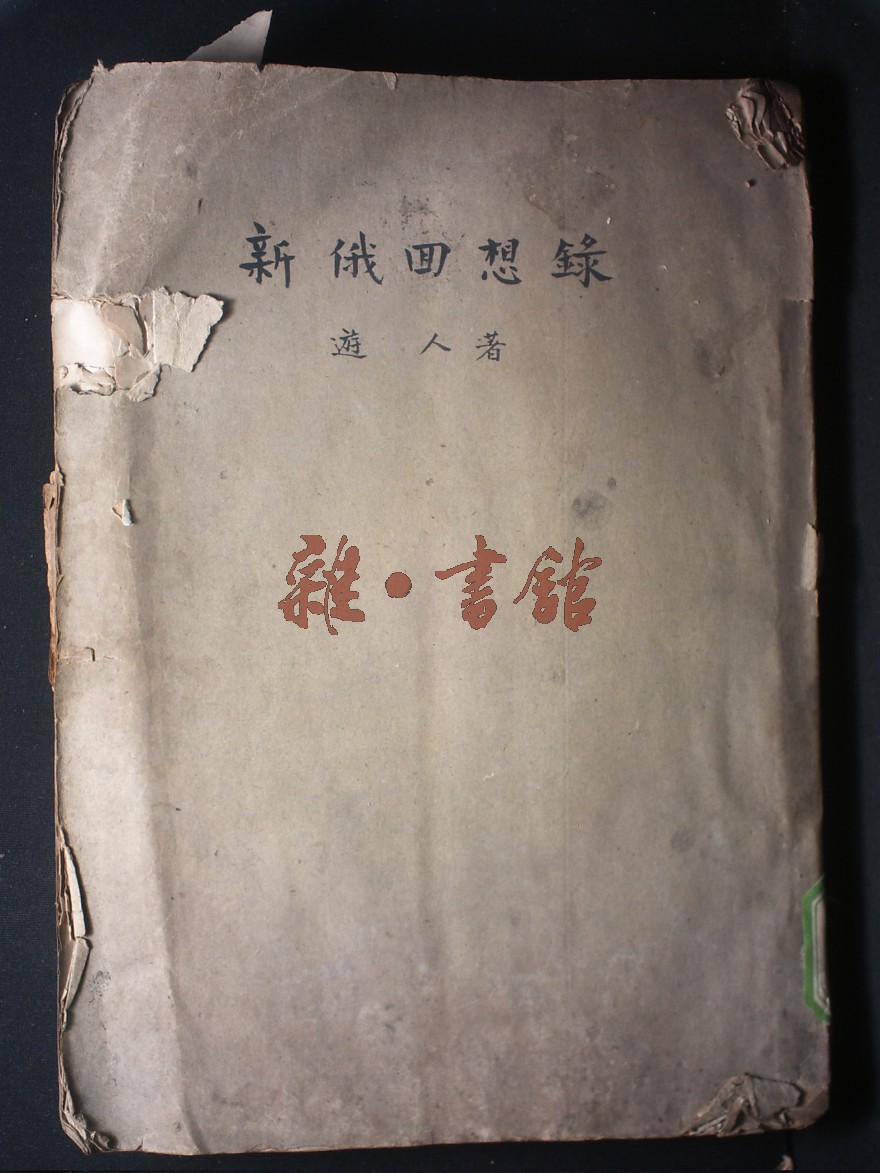 新俄囬想錄
遊人著
雜·書舘